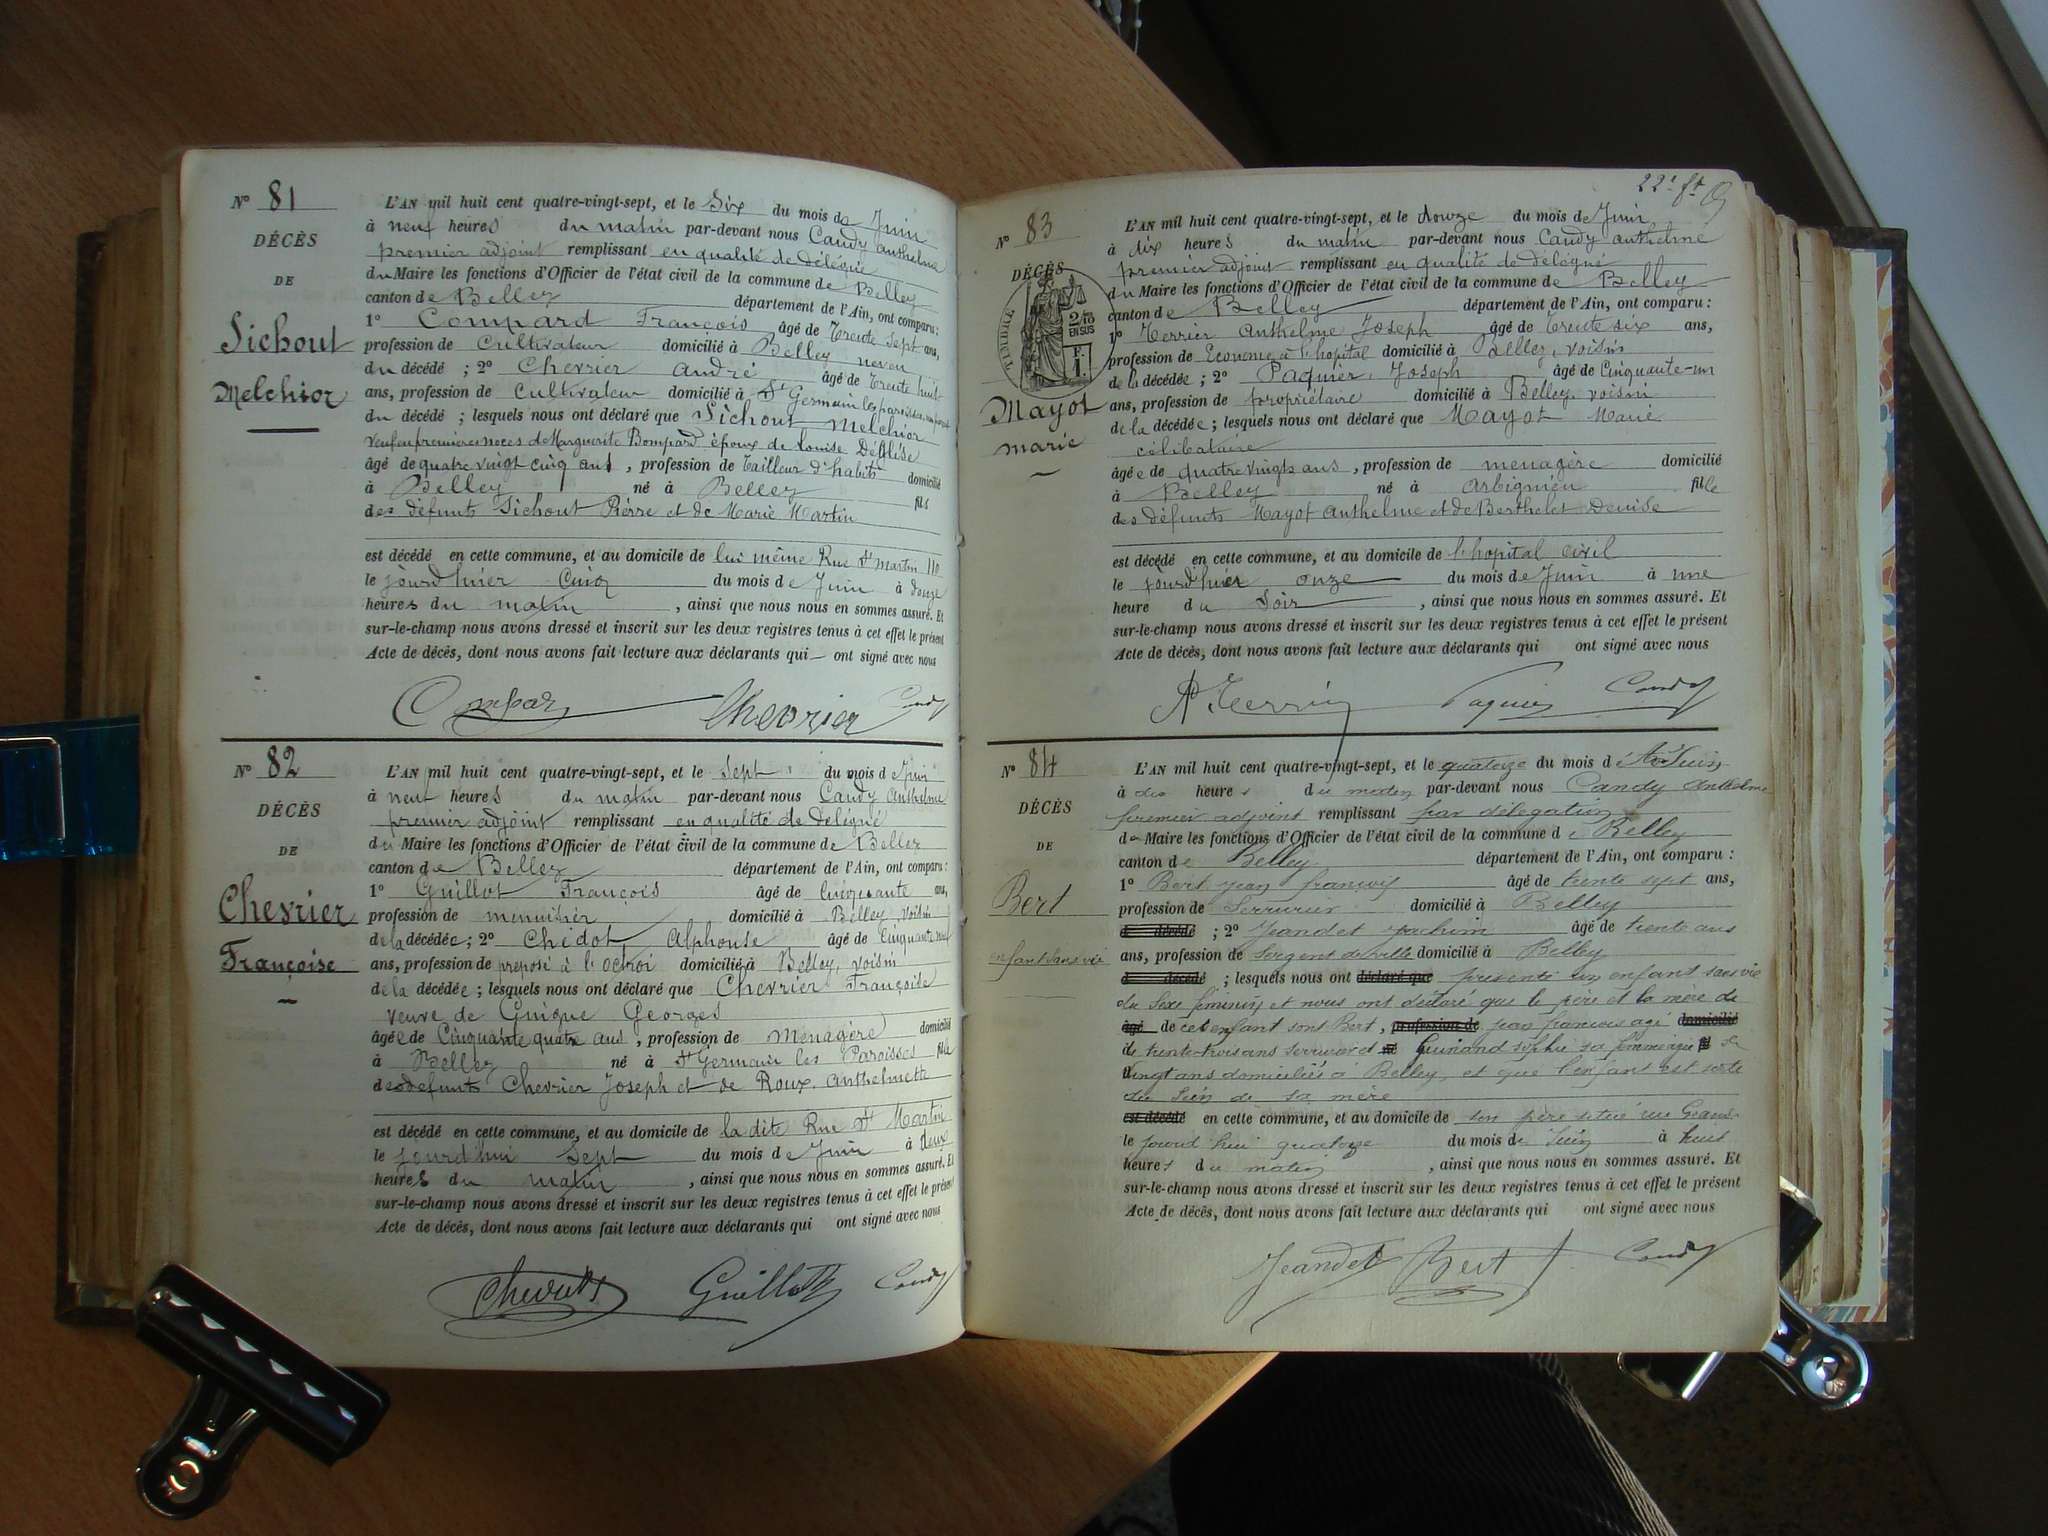 N° 81
DÉCÈS
DE
Sichout
Melchior
L'AN mil huit cent quatre-vingt-sept, et le Six du mois de Juin
à neuf heures du matin par-devant nous Candy Anthelme
premier adjoint remplissant en qualité de délégué
du Maire les fonctions d'Officier de l'état civil de la commune de Belley
canton de Belley département de l'Ain, ont comparu :
1° Compard François âgé de Trente sept ans,
profession de Cultivateur domicilié à Belley neveu
du décédé ; 2° Chevrier André âgé de Trente huit
ans, profession de Cultivateur domicilié à St Germain les paroisses
du décédé ; lesquels nous ont déclaré que Sichout Melchior
veuf en premières noces de Marguerite Bompard époux de Louise
âgé de quatre vingt cinq ans, profession de Tailleur d'habits domicilié
à Belley né à Belley fils
des défunts Sichout Pierre et de Marie Martin
est décédé en cette commune, et au domicile de lui même Rue St Martin 110
le jourd'hier Cinq du mois de Juin à douze
heures du matin, ainsi que nous nous en sommes assuré. Et
sur-le-champ nous avons dressé et inscrit sur les deux registres tenus à cet effet le présent
Acte de décès, dont nous avons fait lecture aux déclarants qui ont signé avec nous
Compar Chevrier Candy
N° 82
DÉCÈS
DE
Chevrier
Françoise
L'AN mil huit cent quatre-vingt-sept, et le Sept du mois de Juin
à neuf heures du matin par-devant nous Candy Anthelme
premier adjoint remplissant en qualité de délégué
du Maire les fonctions d'Officier de l'état civil de la commune de Belley
canton de Belley département de l'Ain, ont comparu :
1° Guillot François âgé de Cinquante ans,
profession de menuisier domicilié à Belley, voisin
de la décédée ; 2° Chidot Alphonse âgé de Cinquante neuf
ans, profession de préposé à l'octroi domicilié à Belley, voisin
de la décédée ; lesquels nous ont déclaré que Chevrier Françoise
veuve de Guigue Georges
âgée de Cinquante quatre ans, profession de Menagère domicilié
à Belley né à St Germain les Paroisses fille
des défunts Chevrier Joseph et de Roux Anthelmette
est décédé en cette commune, et au domicile de la dite Rue St Martin
le jourd'hui Sept du mois de Juin à deux
heures du matin, ainsi que nous nous en sommes assuré. Et
sur-le-champ nous avons dressé et inscrit sur les deux registres tenus à cet effet le présent
Acte de décès, dont nous avons fait lecture aux déclarants qui ont signé avec nous
Guillot Candy
N° 83
DÉCÈS
TIMBRE
2/10
EN SUS
F.
1.
Mayot
marie
L'AN mil huit cent quatre-vingt-sept, et le douze du mois de Juin
à dix heures du matin par-devant nous Candy Anthelme
premier adjoint remplissant en qualité de délégué
du Maire les fonctions d'Officier de l'état civil de la commune de Belley
canton de Belley département de l'Ain, ont comparu :
1° Terrier Anthelme Joseph âgé de Trente six ans,
profession de Econome à l'hopital domicilié à Belley, voisin
de la décédée ; 2° Paquier Joseph âgé de Cinquante-un
ans, profession de propriétaire domicilié à Belley, voisin
de la décédée ; lesquels nous ont déclaré que Mayot Marie
célibataire
âgée de quatre vingts ans, profession de menagère domicilié
à Belley né à Arbignieu fille
des défunts Mayot Anthelme et de Berthelet Denise
est décédé en cette commune, et au domicile de l'hopital civil
le jourd'hier onze du mois de Juin à une
heure du Soir, ainsi que nous nous en sommes assuré. Et
sur-le-champ nous avons dressé et inscrit sur les deux registres tenus à cet effet le présent
Acte de décès, dont nous avons fait lecture aux déclarants qui ont signé avec nous
Paquier Candy
N° 84
DÉCÈS
DE
Bert
enfant sans vie
L'AN mil huit cent quatre-vingt-sept, et le quatorze du mois de Juin
à dix heures du matin par-devant nous Candy Anthelme
premier adjoint remplissant par délégation
du Maire les fonctions d'Officier de l'état civil de la commune de Belley
canton de Belley département de l'Ain, ont comparu :
1° Bert jean françois âgé de trente sept ans,
profession de Serrurier domicilié à Belley
décédé ; 2° Jeandet Joachim âgé de trente ans
ans, profession de Sergent de ville domicilié à Belley
décédé ; lesquels nous ont déclaré que présenté un enfant sans vie
du sexe féminin et nous ont déclaré que le père et la mère de
âgé de cet enfant sont Bert, profession de jean francois agé domicilié
de trente-trois ans serrurier et Guinand Sophie sa femme agée de
vingt ans domiciliés à Belley, et que l'enfant est sorti
du sein de sa mère
est décédé en cette commune, et au domicile de son père situé rue
le jourd'hui quatorze du mois de Juin à huit
heures du matin, ainsi que nous nous en sommes assuré. Et
sur-le-champ nous avons dressé et inscrit sur les deux registres tenus à cet effet le présent
Acte de décès, dont nous avons fait lecture aux déclarants qui ont signé avec nous
Jeandet Bert Candy